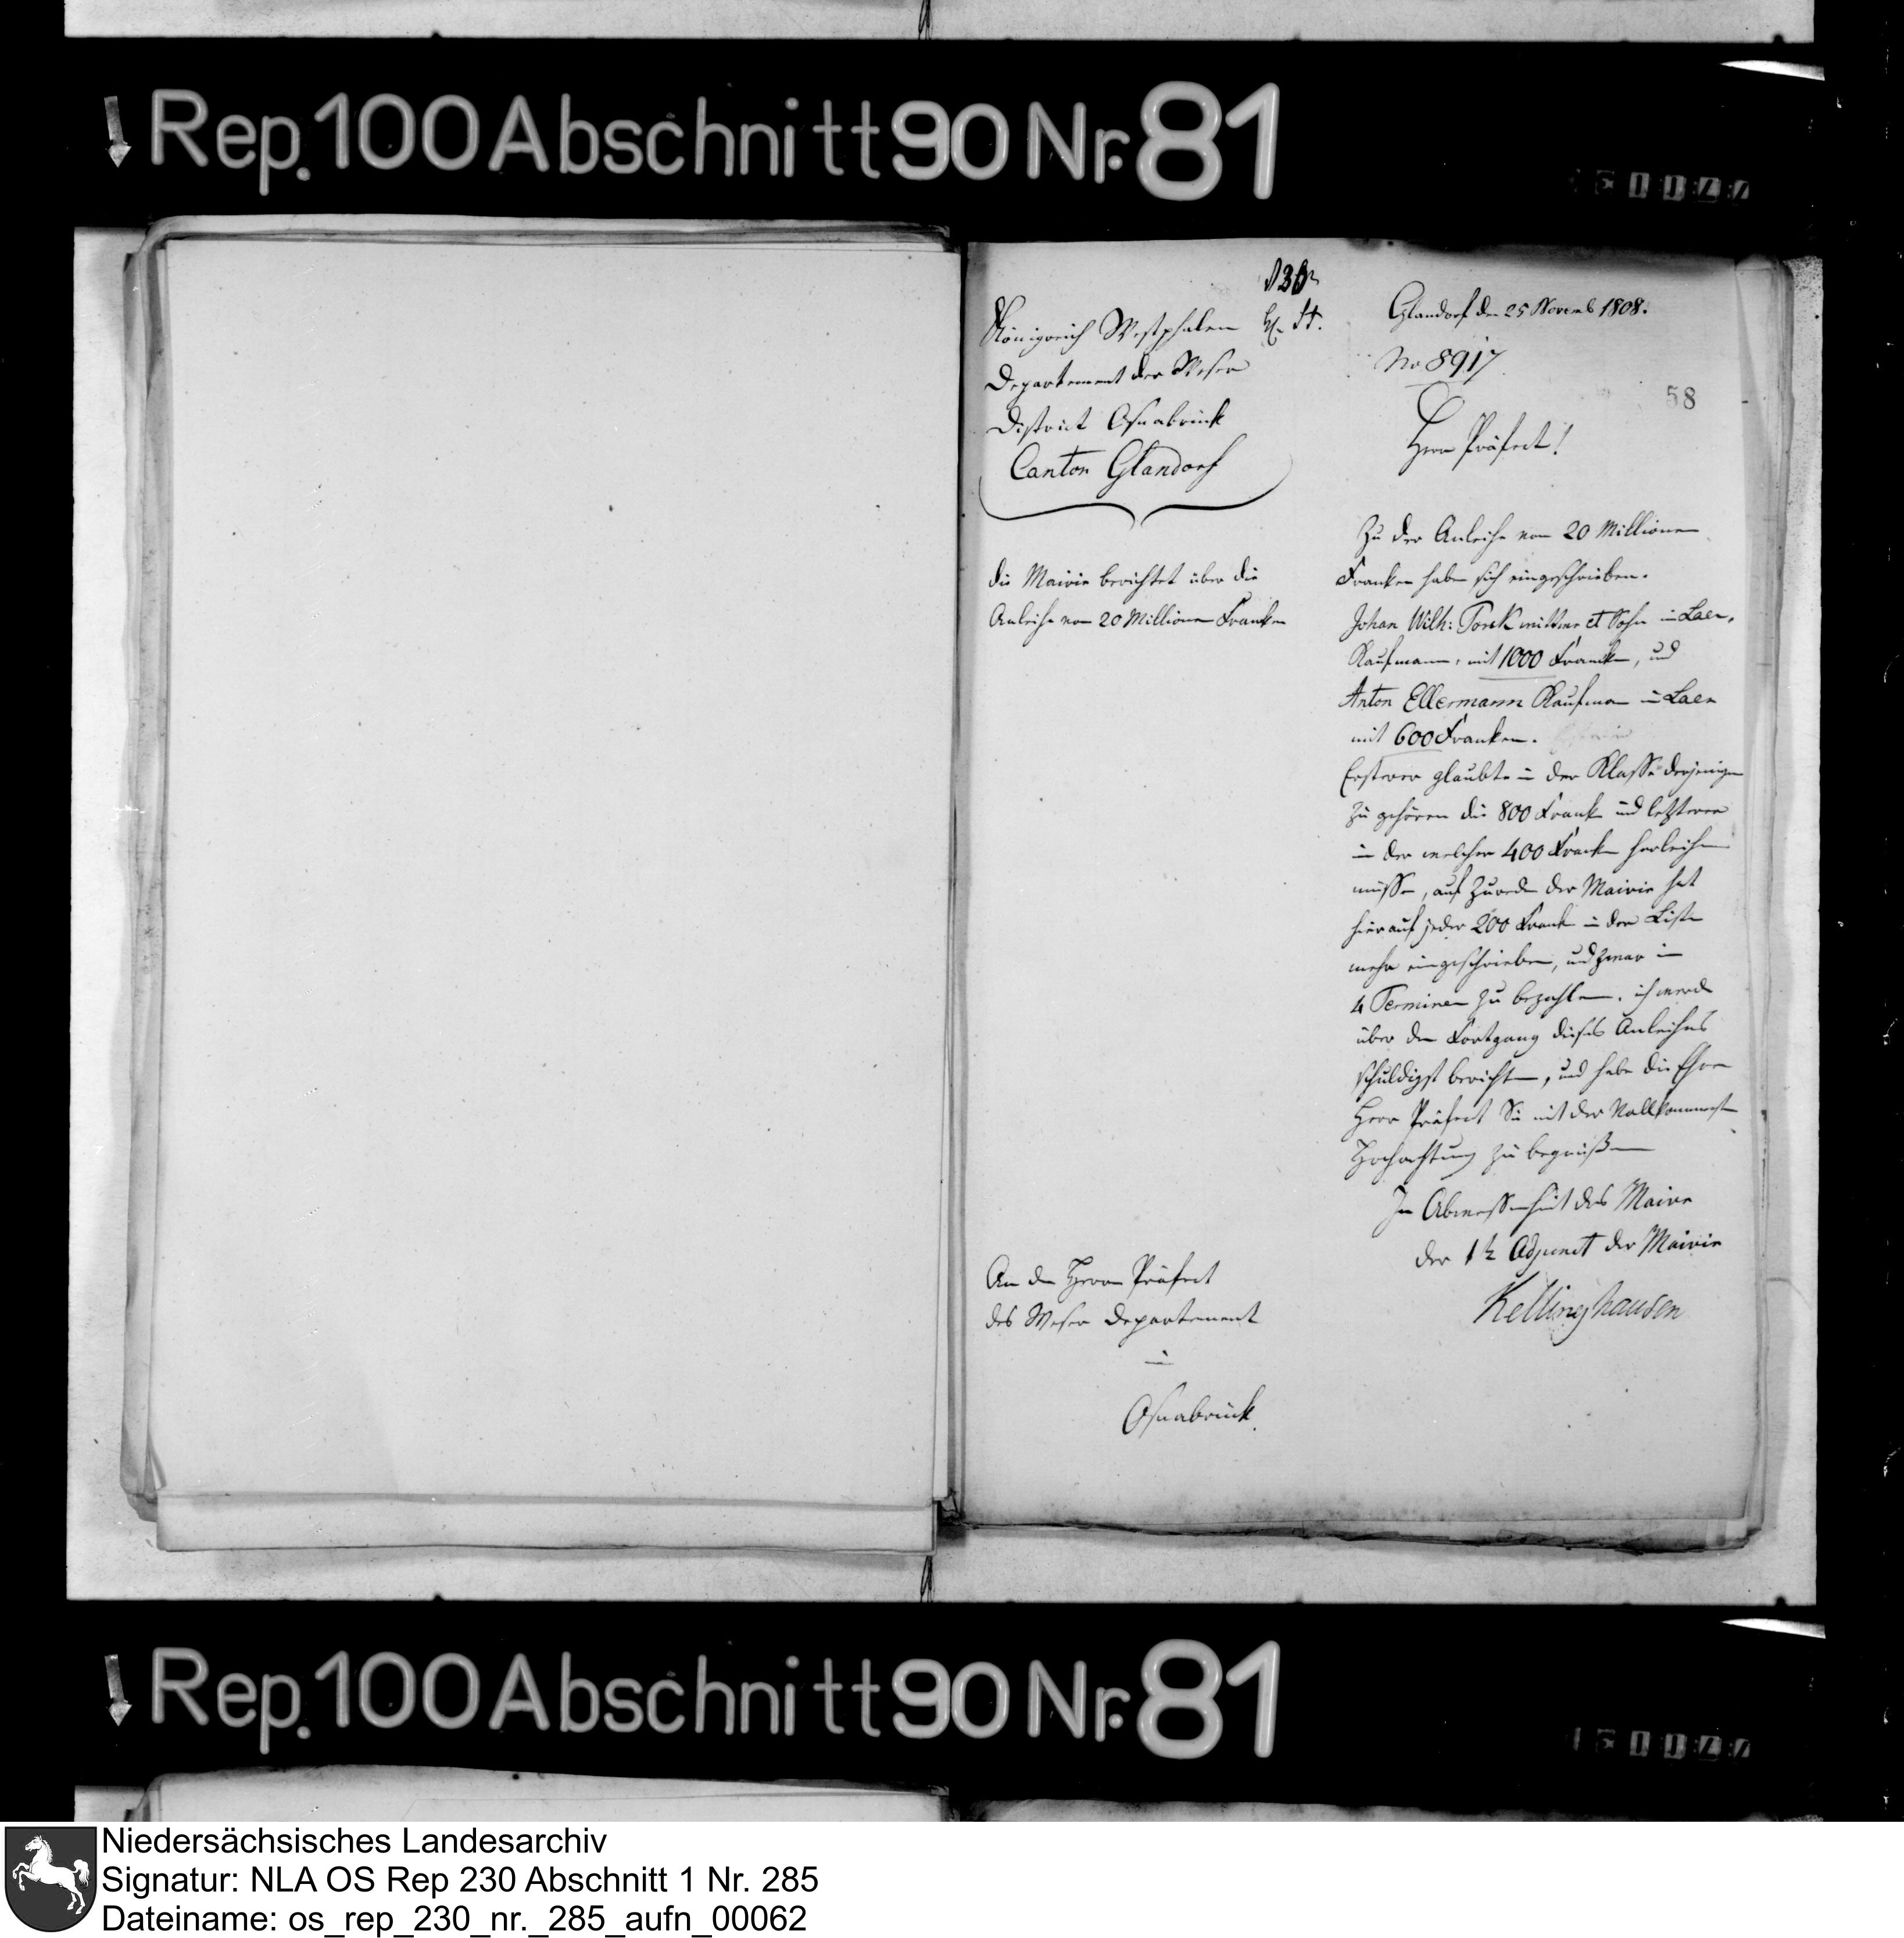 Rep. 100 Abschnitt 90 Nr. 81
Königreich Westphalen
Departement der Weser
District Osnabrück
Canton Glandorf
die Mairie berichtet über die
Anleihe von 20 Millionen Franken
An den Herrn Präfect
des Weser Departement
in
Osnabrück.
Glandorf den 25 Novemb 1808.
No 8917
58
Herr Präfect!
Zu der Anleihe von 20 Millionen
Franken haben sich eingeschrieben.
Johan Wilh: et Sohn in Laer,
Kaufmann, mit 1000 Franken, und
Anton Ellermann Kaufman in Laer
mit 600 Franken.
Ersterer glaubte in der Klasse derjenigen
zu gehören die 800 Frank und letzterer
in der welcher 400 Frank herleihen
müsse, auf Zureden der Mairie hat
hierauf jeder 200 Frank in der Liste
mehr eingeschrieben, und zwar in
4 Terminen zu bezahlen. ich werde
über den Fortgang dieses Anleihes
schuldigst berichten, und habe die Ehre
Herr Präfect Sie mit der Vollkommensten
Hochachtung zu begrüßen
In Abwessenheit des Maire
der 1te Adjunct der Mairie
Kellinghausen
Rep. 100 Abschnitt 90 Nr. 81
Niedersächsisches Landesarchiv
Signatur: NLA OS Rep 230 Abschnitt 1 Nr. 285
Dateiname: os_rep_230_nr._285_aufn_00062